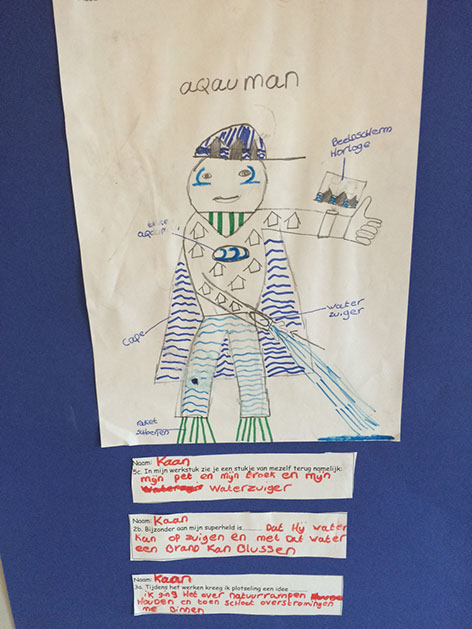 aqauman
Beeldscherm
Horloge
aqaup
Water
zuiger
Cape
raket
schoenen
Naam: Kaan
5c. In mijn werkstuk zie je een stukje van mezelf terug namelijk:
mijn pet en mijn broek en mijn
Waterzuiger
Naam: Kaan
2b. Bijzonder aan mijn superheld is Dat Hij water
Kan op zuigen en met Dat water
een Brand Kan Blussen
Naam: Kaan
3a. Tijdens het werken kreeg ik plotseling een idee
ik ging Het over natuurrampen
Houden en toen schoot overstromingen
me Binnen